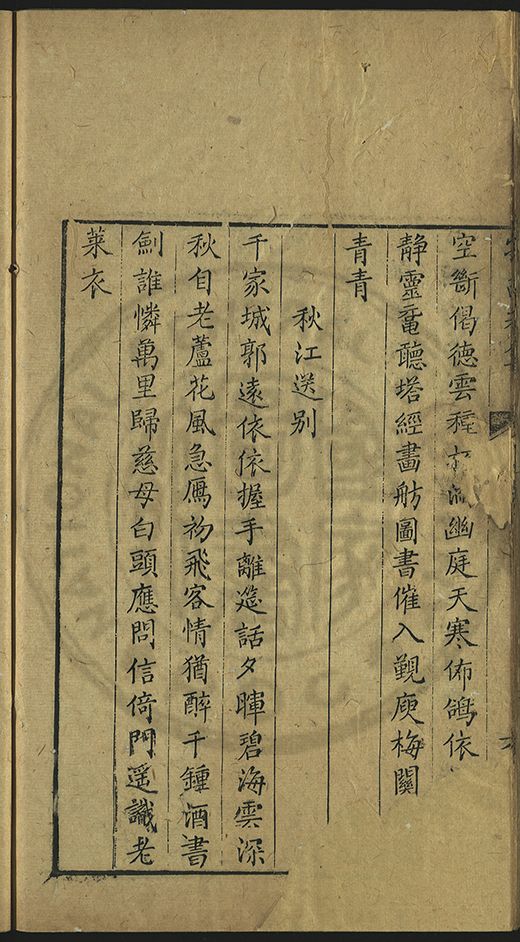 空斷偈德雲種幽庭天寒佈鴿依
靜靈竜聽塔經畵舫圖書催入覲庾梅關
青青
秋江送别
千家城郭遠依依握手離筵話夕暉碧海雲深
秋自老蘆花風急鴈初飛客情猶醉千鍾酒書
劍誰憐萬里歸慈母白頭應問信倚門遥識老
萊衣